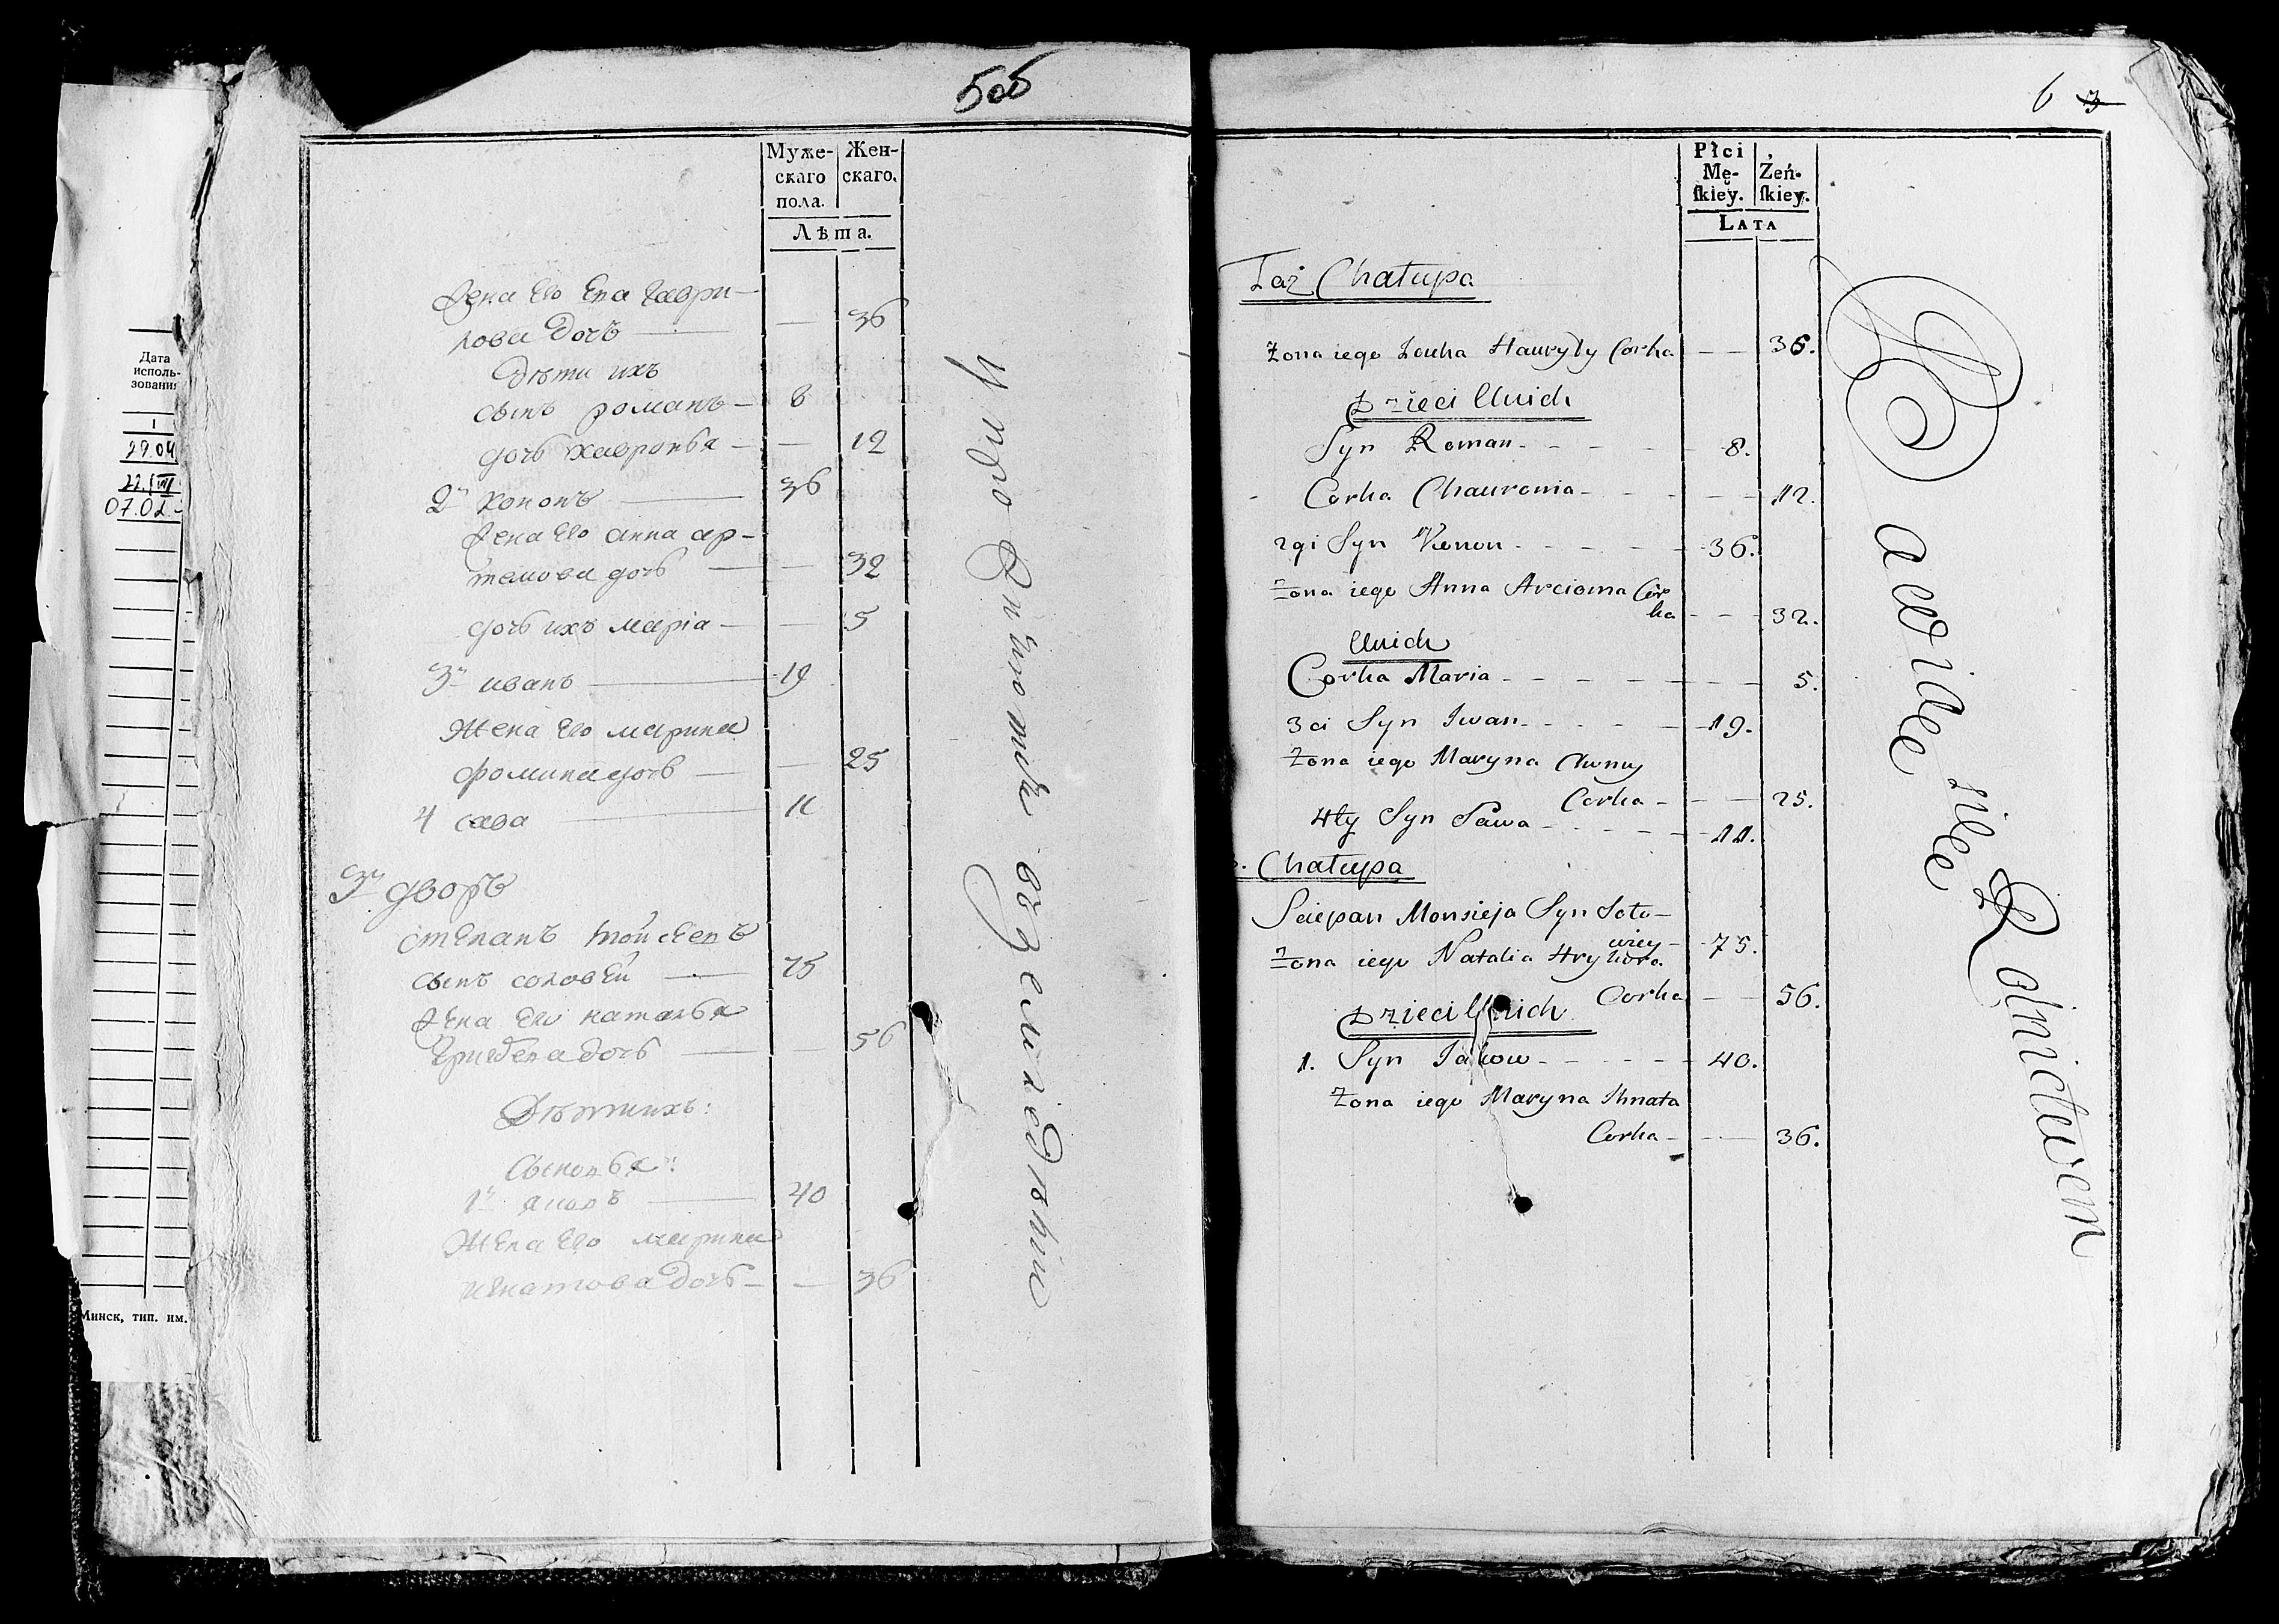 Дата
исполь-
зования
1
29.04
22.VIII
07.02.
Минск, тип. им.
5об
Муже-
скаго
пола.
Жен-
скаго.
Лѣта.
Жена Его Ева Гаври-
лова дочь — — 36
Дѣти ихъ
сынъ романъ — 8
дочь хавронья — — 12
2й кононъ — 36
Жена Его анна ар-
темова дочь — — 32
дочь ихъ марiа — — 5
3й иванъ — 19
Жена Его марина
фомина дочь — — 25
4 сава — 11
3й дворъ
степанъ мойсеевъ
сынъ соловей — 75
Жена Его наталья
Григорева дочь — — 56
Дѣти ихъ:
Сыновья:
1й яковъ — 40
Жена Его марина
игнатова дочь — — 36
Упражняются въ земледѣлiи
6 3
Płci
Mę-
ſkiey.
Żeń-
ſkiey.
LATA
Taż Chałupa
Żona iego Ieuha Hauryły Corka — — 36.
Dzieci Unich
Syn Roman - - - - 8.
Corka Chauronia - - - - - 12.
2gi Syn Konon - - - - 36.
Żona iego Anna Arcioma Cor
ka - - - 32.
Unich
Corka Maria - - - - - - - 5.
3ci Syn Iwan - - - - 19.
Żona iego Maryna Chomy
Corka - - — 25.
4ty Syn Sawa - - - - - 11.
3. Chałupa
Sciepan Monsieja Syn Soło-
wiey - - 75.
Żona iego Natalia Hryhora
Corka - — 56.
Dzieci Unich
1. Syn Iakow - - - - - 40.
Żona iego Maryna Ihnata
Corka - - — 36.
Bawią się Rolnictwem